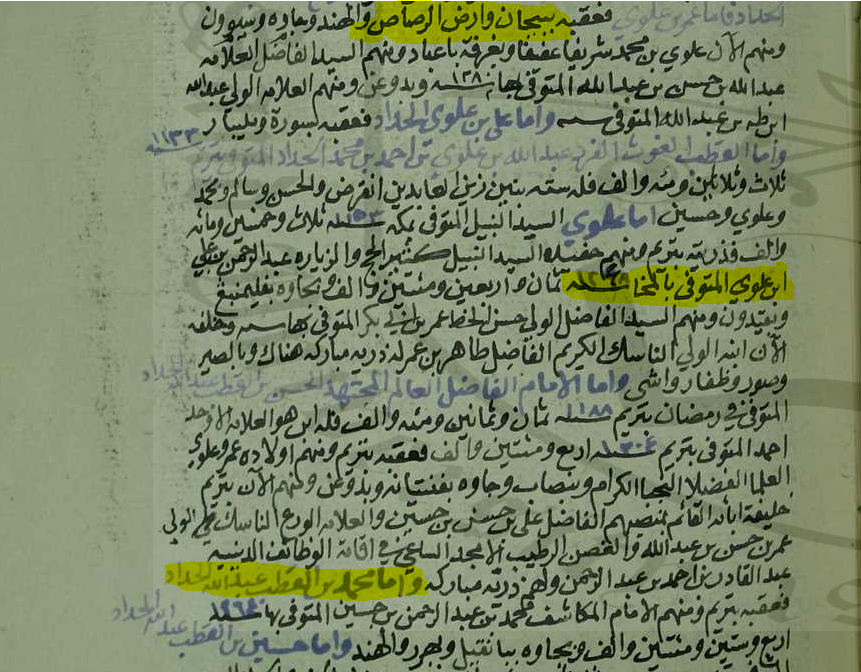 الحداد فاما عمر بن علوي فعقبه ببيجان وارض الرصاص والهند وجاوه وسيوون
ومنهم الآن علوي بن محمد شريفا عفيفا وبغرفة باعباد ومنهم السيد الفاضل العلامه
عبدالله بن حسن بن عبدالله المتوفى بها سنه ١٢٨٠ وبدوعن ومنهم العلامه الولي عبدالله
ابن طه بن عبدالله المتوفى سنه واما علي بن علوي الحداد فعقبه بسورة ومليبار
واما القطب الغوث الفرد عبدالله بن علوي بن احمد بن محمد الحداد المتوفى بتريم سنه ١١٣٣
ثلاث وثلاثين ومئه والف فله سته بنين زين العابدين انقرض والحسن وسالم ومحمد
وعلوي وحسين اما علوي السيد النبيل المتوفى بمكه سنه ١١٥٣ ثلاث وخمسين ومائه
والف فذريته بتريم ومنهم حفيده السيد النبيل كثير الحج والزياره عبدالرحمن بن علي
ابن علوي المتوفى بالمخا سنه ١٢٤٨ ثمان واربعين ومئتين والف وبجاوه بفليمبغ
وبقيدون ومنهم السيد الفاضل الولي حسن الخط عمر بن ابي بكر المتوفى بها سنه وخلفه
الآن ابنه الولي الناسك الكريم الفاضل طاهر بن عمر له ذريه مباركه هناك وبالصير
وصور وظفار واشي واما الامام الفاضل العالم المجتهد الحسن بن القطب عبدالله الحداد
المتوفى في رمضان بتريم سنه ١١٨٨ ثمان وثمانين ومئه والف فله ابن هو العلامه الاوحد
احمد المتوفى بتريم سنه ١٢٠٤ اربع ومئتين والف فعقبه بتريم ومنهم اولاده عمر وعلوي
العلما الفضلا النجبا الكرام وبنصاب وجاوه بفنتيانه وبدوعن ومنهم الآن بتريم
خليفة ابائه القائم بمنصبهم الفاضل علي بن حسن بن حسين والعلامه الورع الناسك الولي
عمر بن حسن بن عبدالله والغصن الرطيب الامجد الساعي في اقامة الوظائف الدينية
عبدالقادر بن احمد بن عبدالرحمن ولهم ذريه مباركه واما محمد بن القطب عبدالله الحداد
فعقبه بتريم ومنهم الامام المكاشف محمد بن عبدالرحمن بن حسين المتوفى بها سنه ١٢٦٤
اربع وستين ومئتين والف وبجاوه ببانقيل وبهرر والهند واما حسين بن القطب عبدالله الحداد